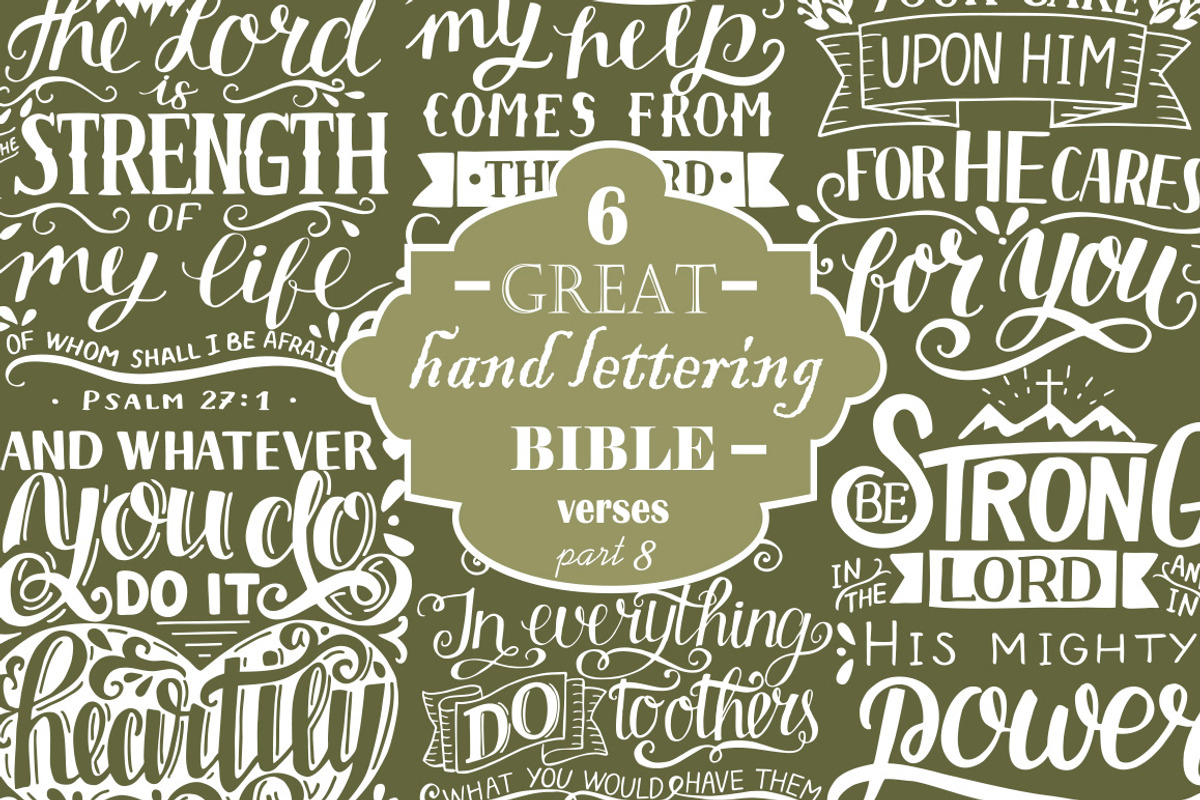 the Lord
is
THE STRENGTH
OF
my life
OF WHOM SHALL I BE AFRAID
· PSALM 27:1 ·
my help
COMES FROM
YOUR CARE
UPON HIM
FOR HE CARES
for you
6
GREAT
hand lettering
BIBLE
verses
part 8
AND WHATEVER
you do
DO IT
heartily
In everything
DO to others
WHAT YOU WOULD HAVE THEM
BE STRONG
IN THE LORD
AND IN
HIS MIGHTY
power